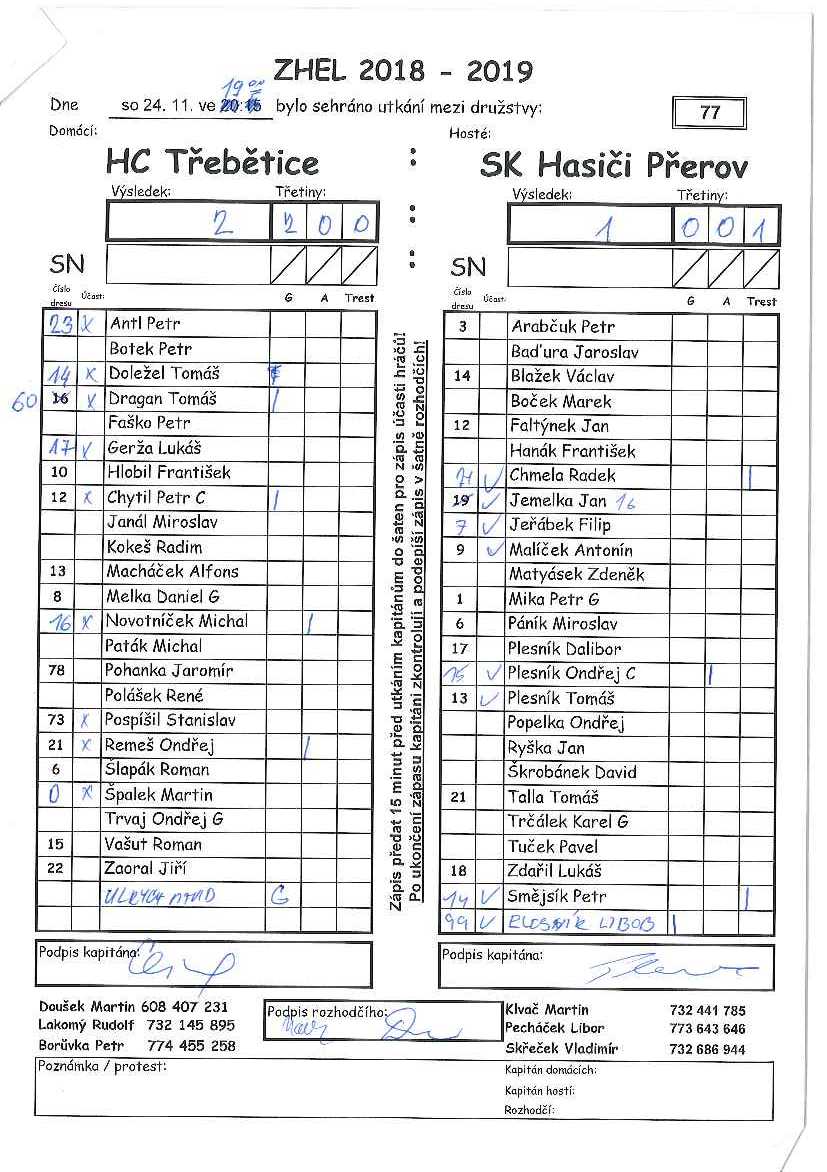 ZHEL 2018 - 2019
19 00
Dne so 24. 11. ve 20:15 bylo sehráno utkání mezi družstvy: 77
Domácí: Hosté:
HC Třebětice : SK Hasiči Přerov
Výsledek: Třetiny: Výsledek: Třetiny:
2 2 0 0 : 1 0 0 1
SN : SN
Číslo dresu Účast: G A Trest
23 x Antl Petr
Botek Petr
14 x Doležel Tomáš
60 16 x Dragan Tomáš |
Faško Petr
17 v Gerža Lukáš
10 Hlobil František
12 x Chytil Petr C |
Janál Miroslav
Kokeš Radim
13 Macháček Alfons
8 Melka Daniel G
16 x Novotníček Michal |
Paták Michal
78 Pohanka Jaromír
Polášek René
73 x Pospíšil Stanislav
21 x Remeš Ondřej |
6 Šlapák Roman
0 x Špalek Martin
Trvaj Ondřej G
15 Vašut Roman
22 Zaoral Jiří
G
Podpis kapitána:
Zápis předat 15 minut před utkáním kapitánům do šaten pro zápis účasti hráčů!
Po ukončení zápasu kapitáni zkontrolují a podepíší zápis v šatně rozhodčích!
Číslo dresu Účast: G A Trest
3 Arabčuk Petr
Baďura Jaroslav
14 Blažek Václav
Boček Marek
12 Faltýnek Jan
Hanák František
71 ✓ Chmela Radek |
19 ✓ Jemelka Jan 16
7 ✓ Jeřábek Filip
9 ✓ Malíček Antonín
Matyásek Zdeněk
1 Mika Petr G
6 Páník Miroslav
17 Plesník Dalibor
15 ✓ Plesník Ondřej C |
13 ✓ Plesník Tomáš
Popelka Ondřej
Ryška Jan
Škrobánek David
21 Talla Tomáš
Trčálek Karel G
Tuček Pavel
18 Zdařil Lukáš
14 ✓ Smějsík Petr |
99 ✓ LIBOR |
Podpis kapitána:
Doušek Martin 608 407 231
Lakomý Rudolf 732 145 895
Borůvka Petr 774 455 258
Podpis rozhodčího:
Klvač Martin 732 441 785
Pecháček Libor 773 643 646
Skřeček Vladimír 732 686 944
Poznámka / protest:
Kapitán domácích:
Kapitán hostí:
Rozhodčí: